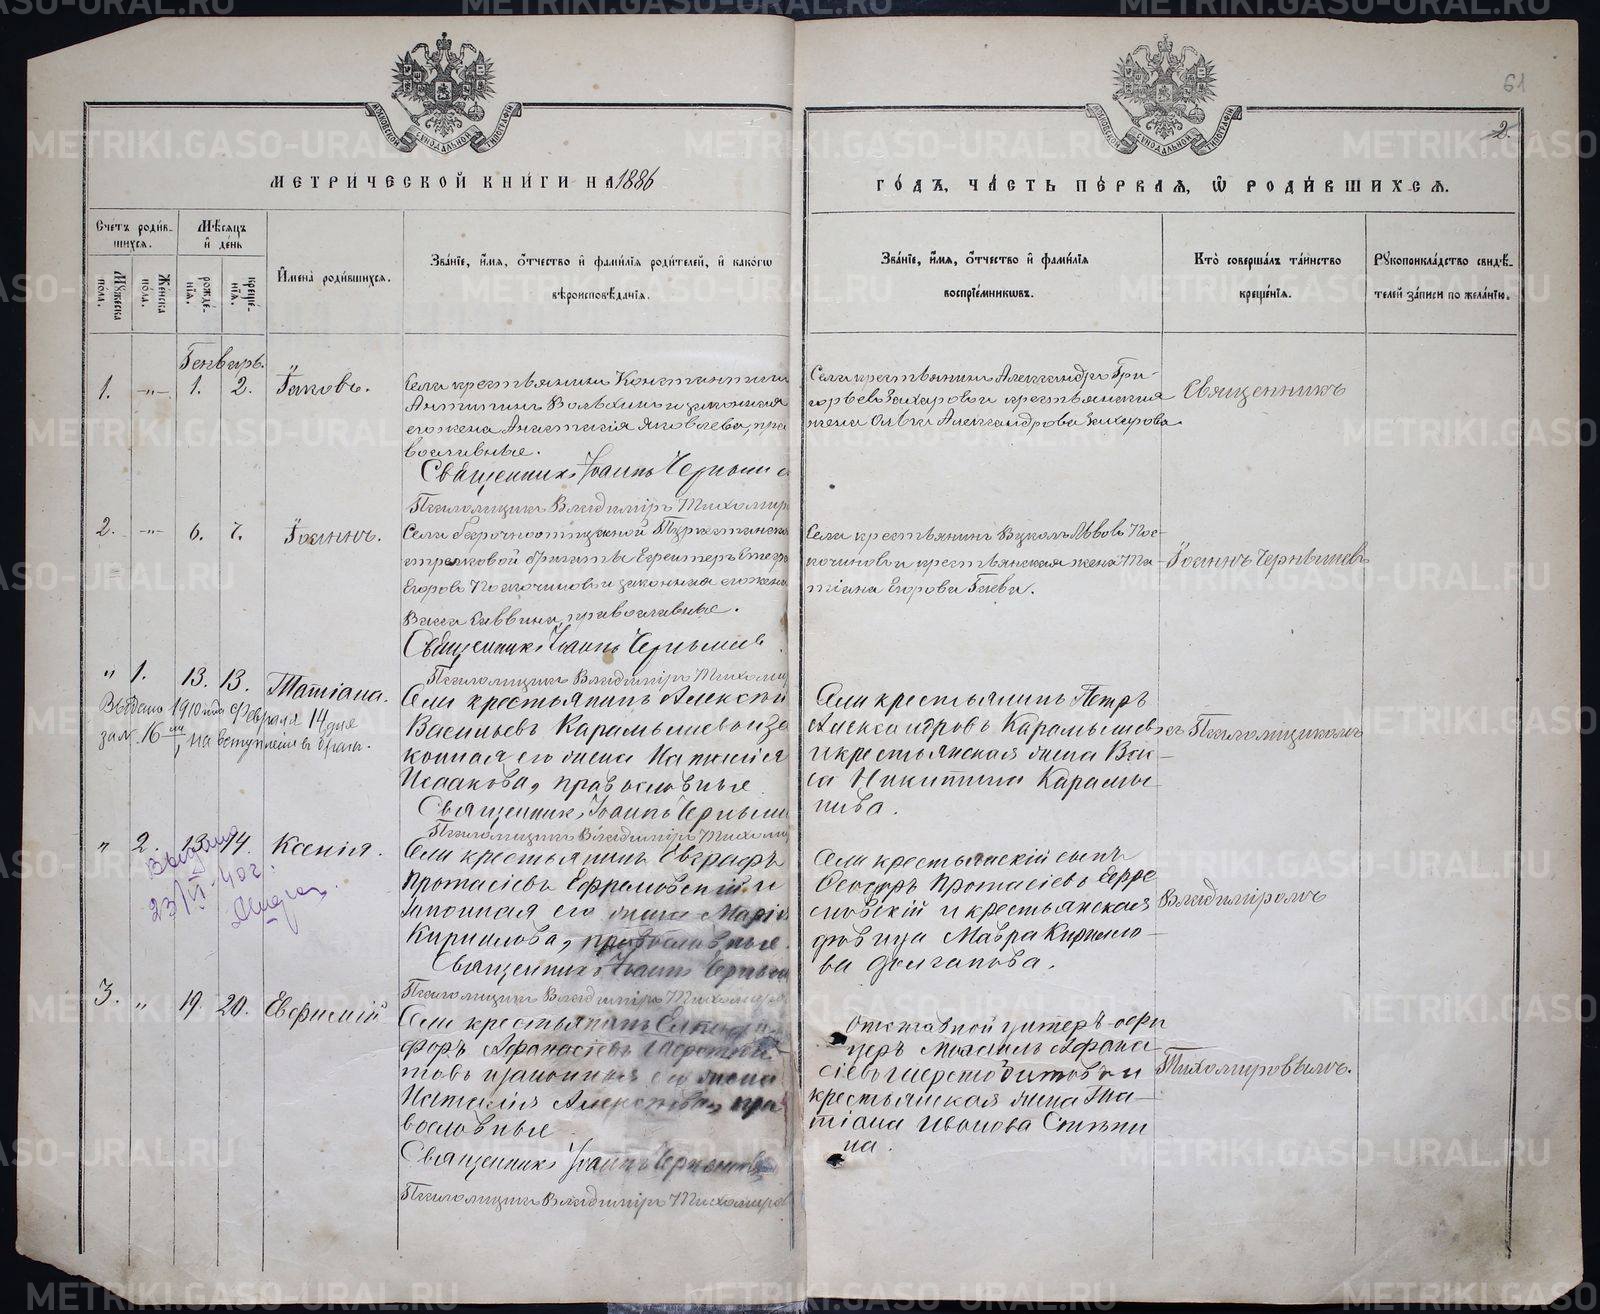 61
2.
МЕТРИЧЕСКОЙ КНИГИ НА 1886
ГОДЪ, ЧАСТЬ ПЕРВАЯ, Ѡ РОДИВШИХСЯ.
Счетъ родив-
шихся.
Мужеска пола.
Женска пола.
Мѣсяцъ
и день
рожде-
нія.
креще-
нія.
Имена родившихся.
Званіе, имя, отчество и фамилія родителей, и какогѡ
вѣроисповѣданія.
Званіе, имя, отчество и фамилія
воспріемникѡвъ.
Кто совершалъ таинство
крещенія.
Рукоприкладство свидѣ-
телей записи по желанію.
Генварь.
1. -„- 1. 2. Іаковъ.
Села крестьянинъ Константинъ
Антипинъ Волѣхинъ и законная
его жена Анастасія Яковлева, пра
вославные.
Священникъ Іоаннъ Черныше
Псаломщикъ Владиміръ Тихомир
Села крестьянинъ Александръ Гри-
горьевъ Захаровъ и крестьянская
жена Ольга Александрова Захарова.
Священникъ
2. -„- 6. 7. Іоаннъ.
Села безсрочноотпускной Туркестанско
стрѣлковой бригады Ефрейторъ
Егоровъ Поскочиновъ и законная его жена
Васса Саввина, православные.
Священникъ Іоаннъ Чернышев
Псаломщикъ Владиміръ Тихоми
Села крестьянинъ Вуколъ Львовъ Пос-
кочиновъ и крестьянская жена Та-
тіана Егорова Гаева.
Іоаннъ Чернышевъ
„ 1. 13. 13. Татіана.
Выдано 1910 года Февраля 14 дня
за № 16 на вступленіе въ бракъ.
Села крестьянинъ Алексѣй
Васильевъ Карамышевъ и за
конная его жена Наталія
Исаакова, православные.
Священникъ Іоаннъ Черныш
Псаломщикъ Владиміръ Тихоми
Села крестьянинъ Петръ
Александровъ Карамышевъ
и крестьянская жена Вас-
са Никитина Карамы-
шева.
съ Псаломщикомъ
„ 2. 13. 14. Ксенія.
Выдано
23/VI 40 г.
Села крестьянинъ Евграфъ
Протасіевъ Ефремовскій и
законная его жена Марія
Кириллова, православные.
Священникъ Іоаннъ Черныш
Псаломщикъ Владиміръ Тихомиро
Села крестьянскій сынъ
Ѳеодоръ Протасіевъ Ефре
мовскій и крестьянская
дѣвица Мавра Кирилло-
ва Долганова.
Владиміромъ
3. „ 19. 20. Евфимій
Села крестьянинъ
форъ Афанасіевъ Шерстоби
товъ и законная его жена
Наталія Алексѣева, пра
вославные
Священникъ Іоаннъ Чернышев
Псаломщикъ Владиміръ Тихомиров
Отставной унтеръ-офи
церъ Михаилъ Афана-
сіевъ Шерстобитовъ и
крестьянская жена Та-
тіана Иванова Степани
на.
Тихомировымъ.